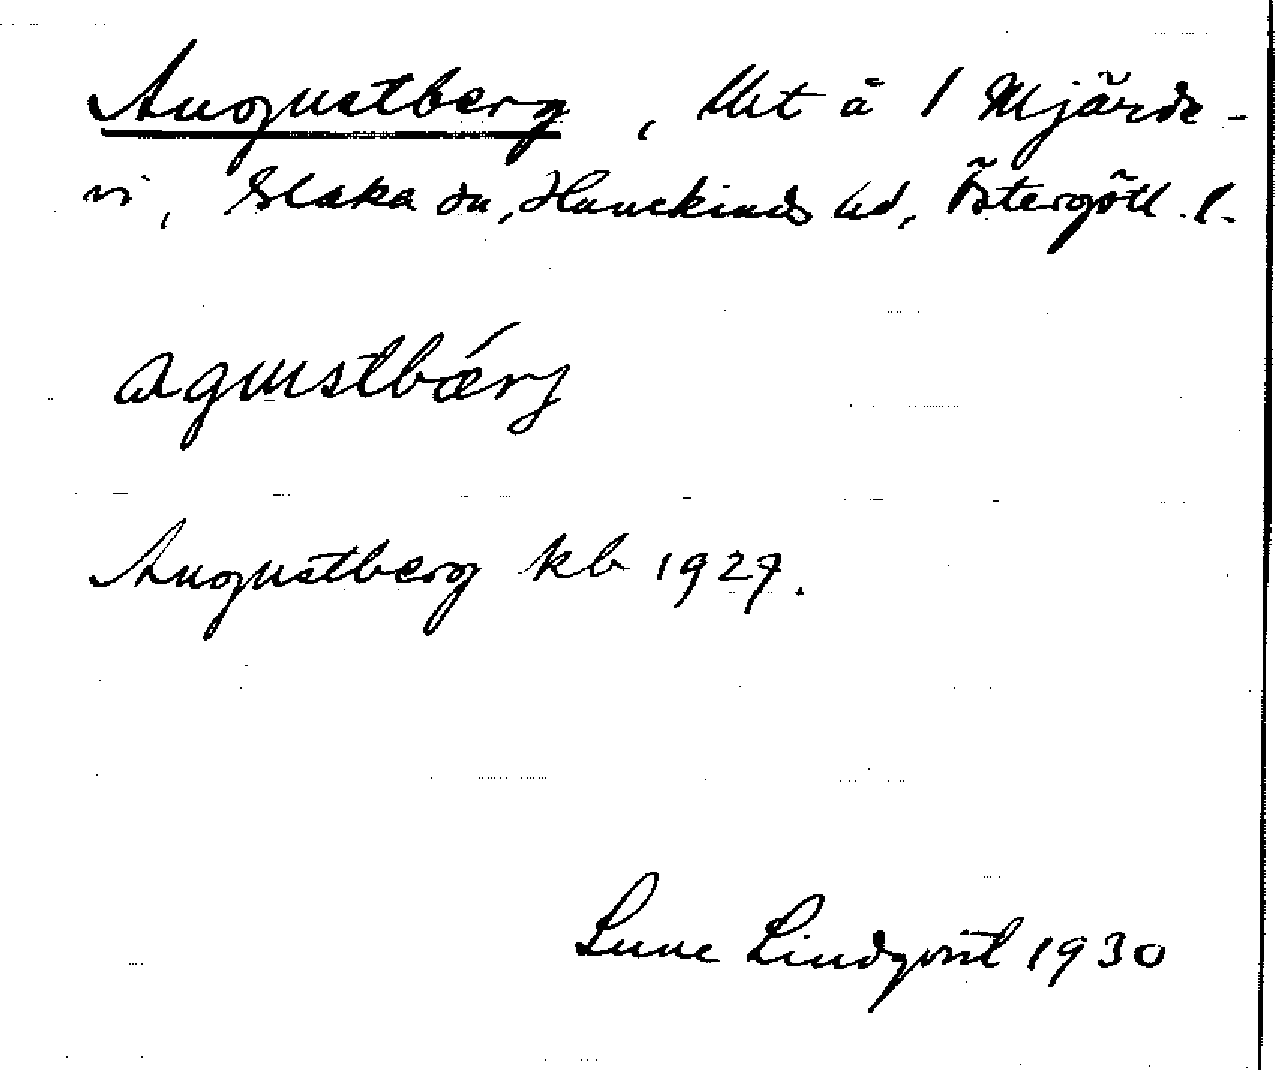 Augustberg, lht å 1 Mjärde-
vi, Slaka sn, Hanekinds hd, Östergötl. l.
agustbǽrj
Augustberg kb 1929.
Sune Lindqvist 1930